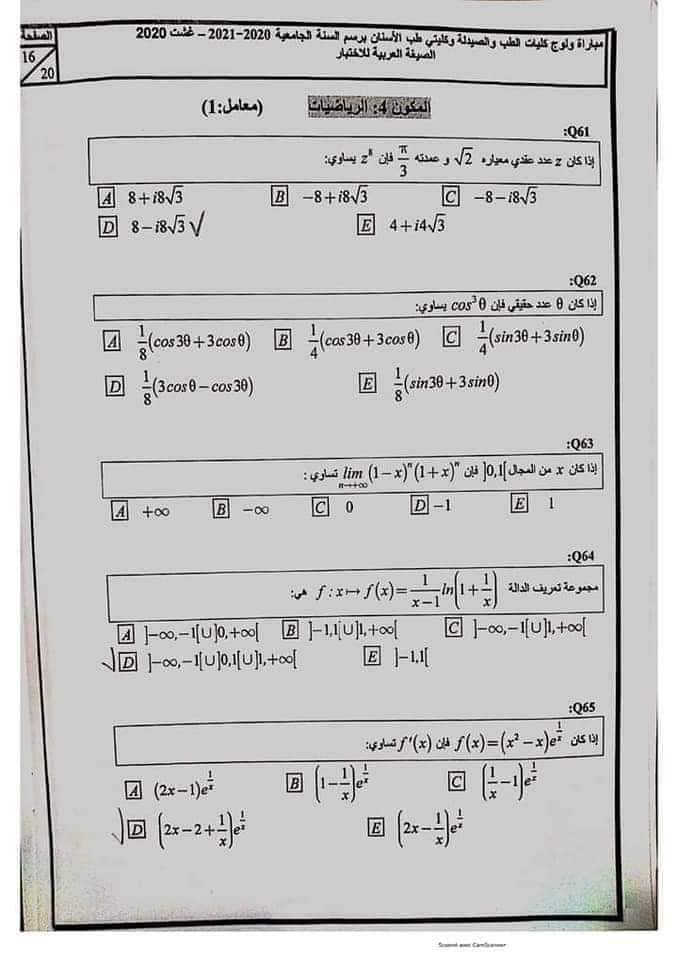 الصفحة
16
20
مباراة ولوج كليات الطب والصيدلة وكليتي طب الأسنان برسم السنة الجامعية 2020-2021 – غشت 2020
الصيغة العربية للاختبار
المكون 4: الرياضيات (معامل:1)
Q61:
إذا كان z عدد عقدي معياره √2 و عمدته π/3 فإن z⁸ يساوي:
A 8+i8√3 B −8+i8√3 C −8−i8√3
D 8−i8√3 ✓ E 4+i4√3
Q62:
إذا كان θ عدد حقيقي فإن cos³θ يساوي:
A 1/8(cos3θ+3cosθ) B 1/4(cos3θ+3cosθ) C 1/4(sin3θ+3sinθ)
D 1/8(3cosθ−cos3θ) E 1/8(sin3θ+3sinθ)
Q63:
إذا كان x من المجال ]0,1[ فإن lim n→+∞ (1−x)ⁿ(1+x)ⁿ تساوي :
A +∞ B −∞ C 0 D −1 E 1
Q64:
مجموعة تعريف الدالة f : x↦ f(x)= 1/(x−1) ln(1+1/x) هي:
A ]−∞,−1[∪]0,+∞[ B ]−1,1[∪]1,+∞[ C ]−∞,−1[∪]1,+∞[
✓ D ]−∞,−1[∪]0,1[∪]1,+∞[ E ]−1,1[
Q65:
إذا كان f(x)=(x²−x)e^(1/x) فإن f'(x) تساوي:
A (2x−1)e^(1/x) B (1−1/x)e^(1/x) C (1/x−1)e^(1/x)
✓ D (2x−2+1/x)e^(1/x) E (2x−1/x)e^(1/x)
Scanné avec CamScanner